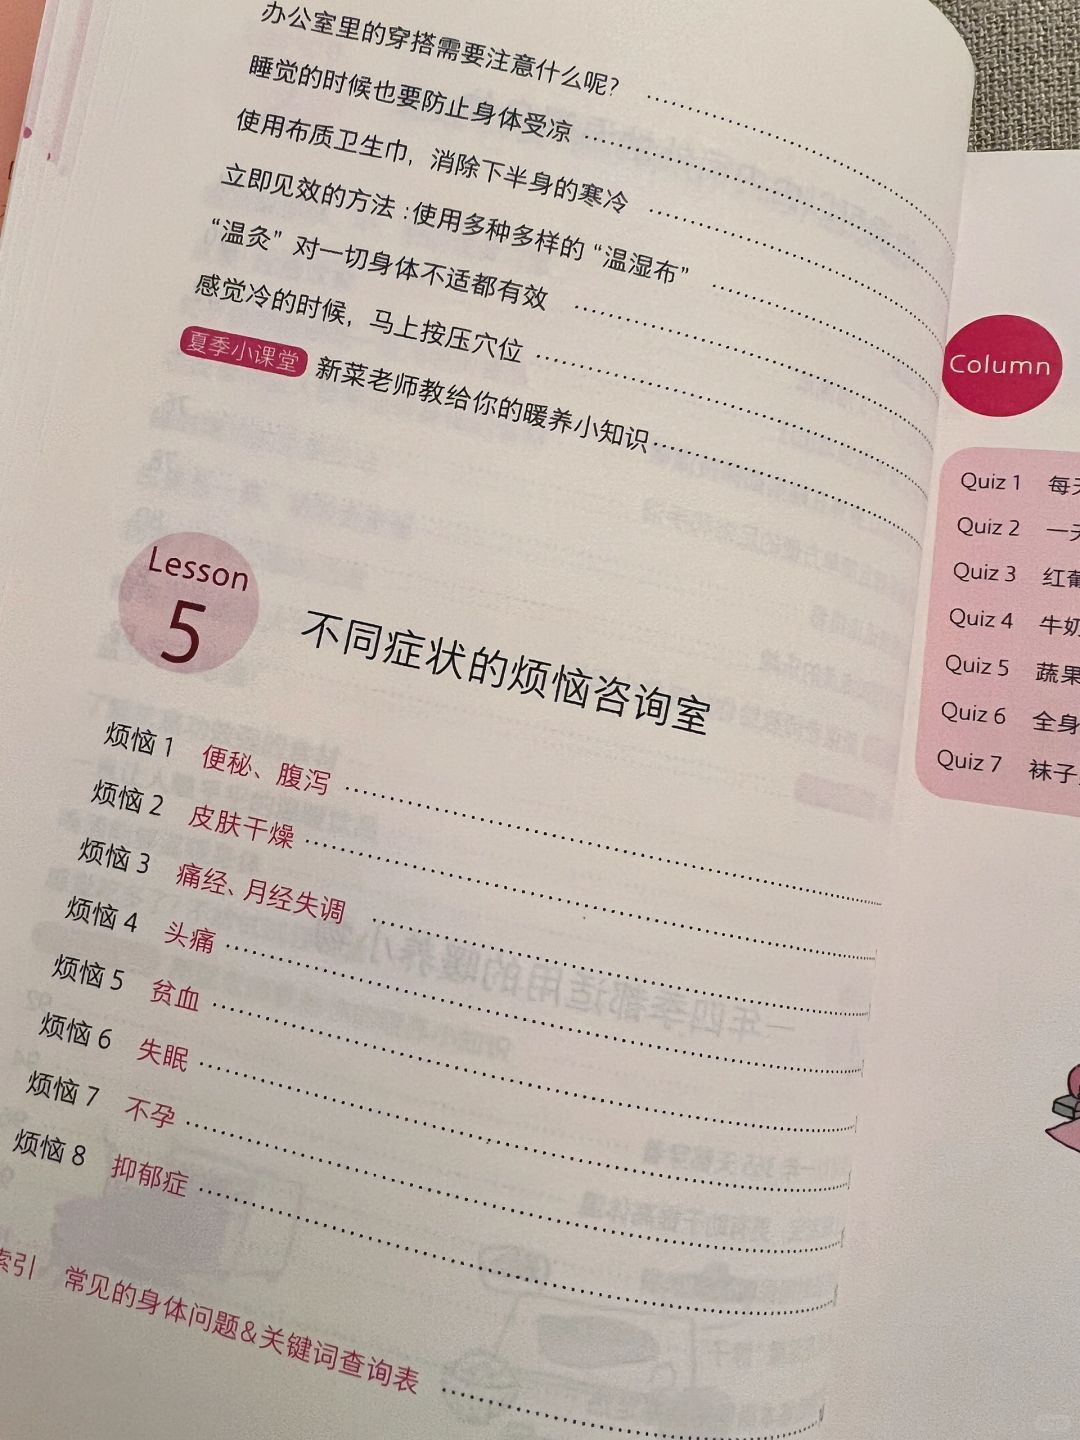 办公室里的穿搭需要注意什么呢?
睡觉的时候也要防止身体受凉
使用布质卫生巾，消除下半身的寒冷
立即见效的方法:使用多种多样的“温湿布”
“温灸”对一切身体不适都有效
感觉冷的时候，马上按压穴位
夏季小课堂 新菜老师教给你的暖养小知识
Lesson
5 不同症状的烦恼咨询室
烦恼1 便秘、腹泻
烦恼2 皮肤干燥
烦恼3 痛经、月经失调
烦恼4 头痛
烦恼5 贫血
烦恼6 失眠
烦恼7 不孕
烦恼8 抑郁症
索引 常见的身体问题&关键词查询表
Column
Quiz 1 每天
Quiz 2 一天
Quiz 3 红葡
Quiz 4 牛奶
Quiz 5 蔬果
Quiz 6 全身
Quiz 7 袜子